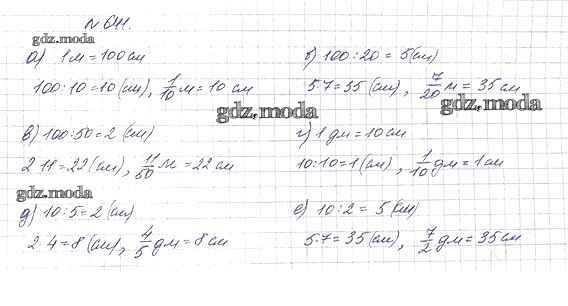 № 641.
gdz.moda
а) 1 м = 100 см
100:10=10 (см), 1/10 м = 10 см
б) 100:20 = 5 (см)
5·7=35 (см), 7/20 м = 35 см
gdz.moda
gdz.moda
в) 100:50=2 (см)
2·11=22 (см), 11/50 м = 22 см
г) 1 дм = 10 см
10:10=1 (см), 1/10 дм = 1 см
gdz.moda
д) 10:5=2 (см)
2·4=8 (см), 4/5 дм = 8 см
е) 10:2 = 5 (см)
5·7=35 (см), 7/2 дм = 35 см